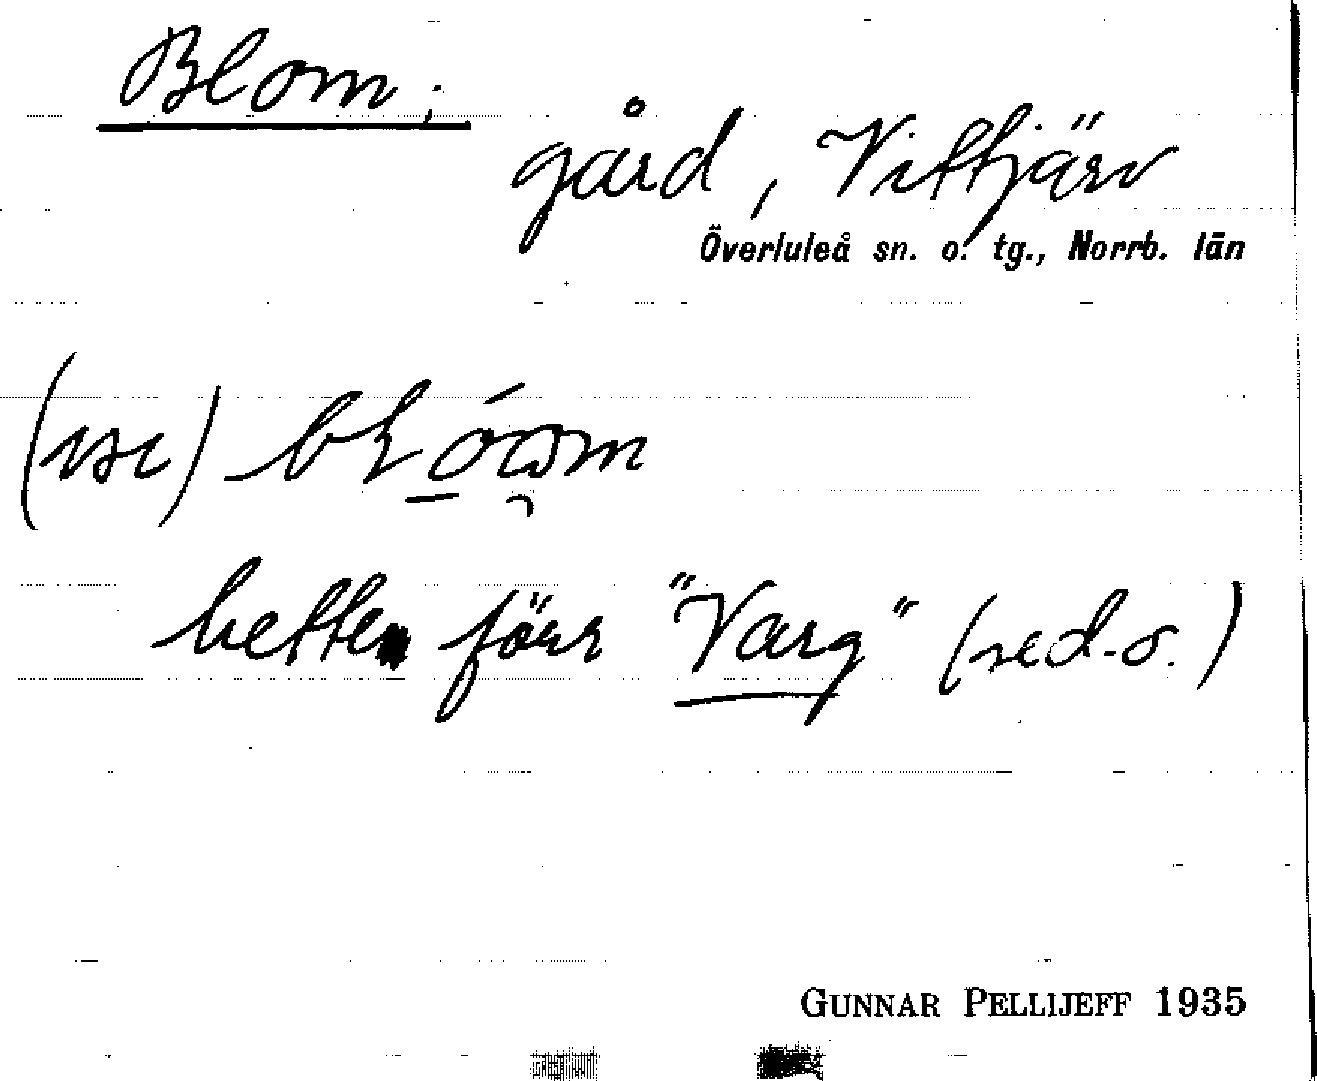 Blom;
gård, Vittjärv
Överluleå sn. o. tg., Norrb. län
hette förr "Varg" (sed-o.)
GUNNAR PELLIJEFF 1935